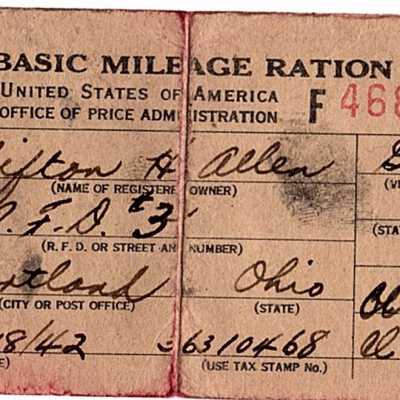 BASIC MILEAGE RATION
UNITED STATES OF AMERICA
OFFICE OF PRICE ADMINISTRATION F 468
Clifton H Allen
(NAME OF REGISTERED OWNER)
R.F.D. #3
(R. F. D. OR STREET AND NUMBER) (STA
Cortland Ohio
(CITY OR POST OFFICE) (STATE)
18/42 56310468
(USE TAX STAMP No.)